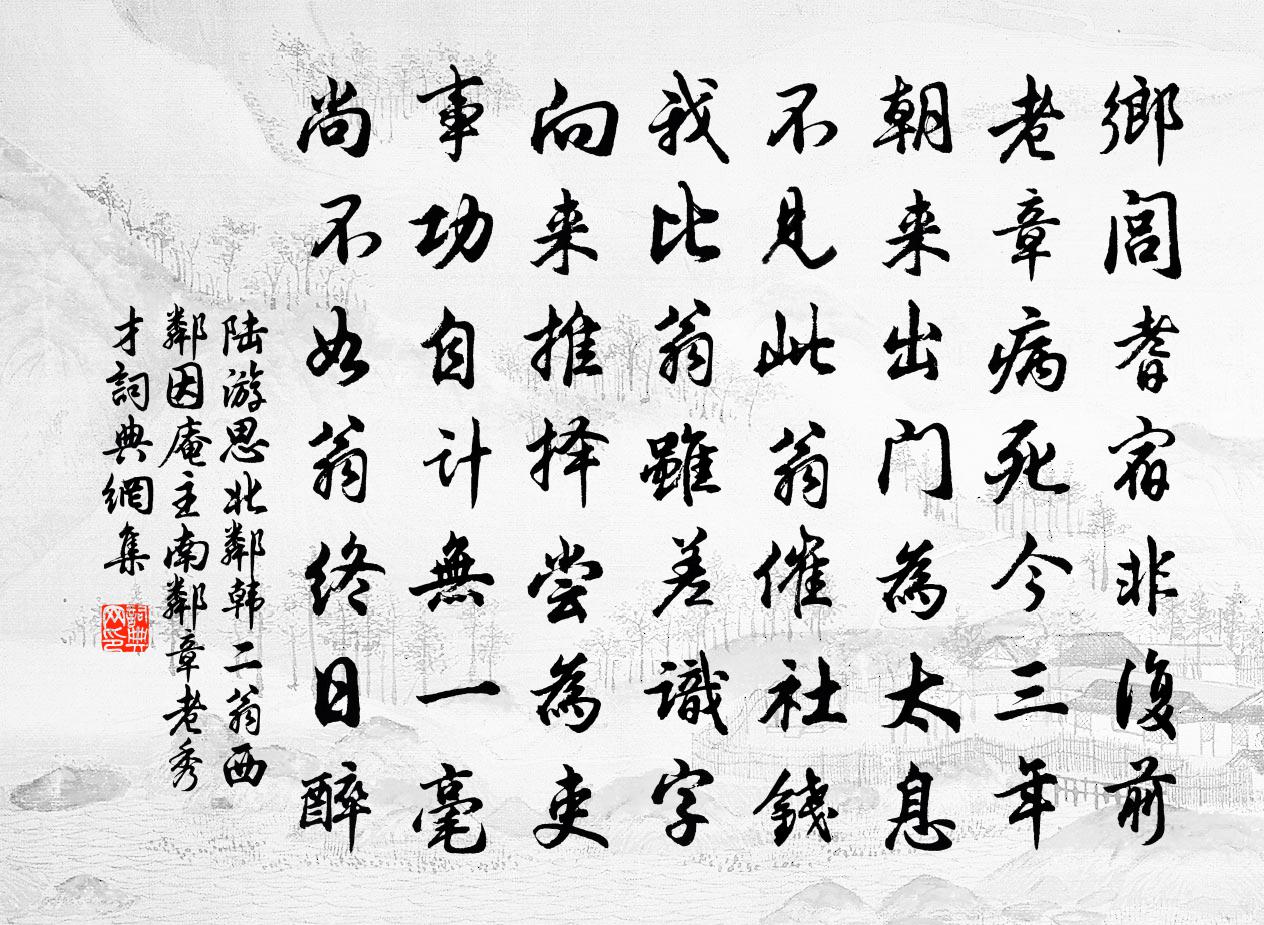 鄉閭耆宿非復前
老章病死今三年
朝来出门為太息
不見此翁催社錢
我比翁雖差識字
向来推择尝為吏
事功自计無一毫
尚不如翁终日醉
陆游思北鄰韩二翁西
鄰因庵主南鄰章老秀
才詞典網集
詞典网印